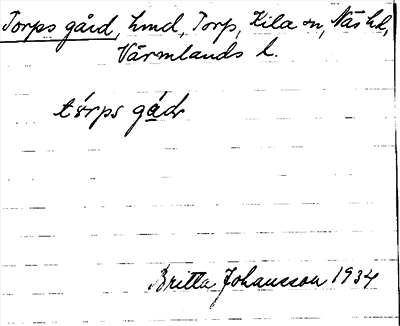 Torps gård, hmd, Torp, Kila sn, Näs hd,
Värmlands l.
tórps gádr
Britta Johansson 1934